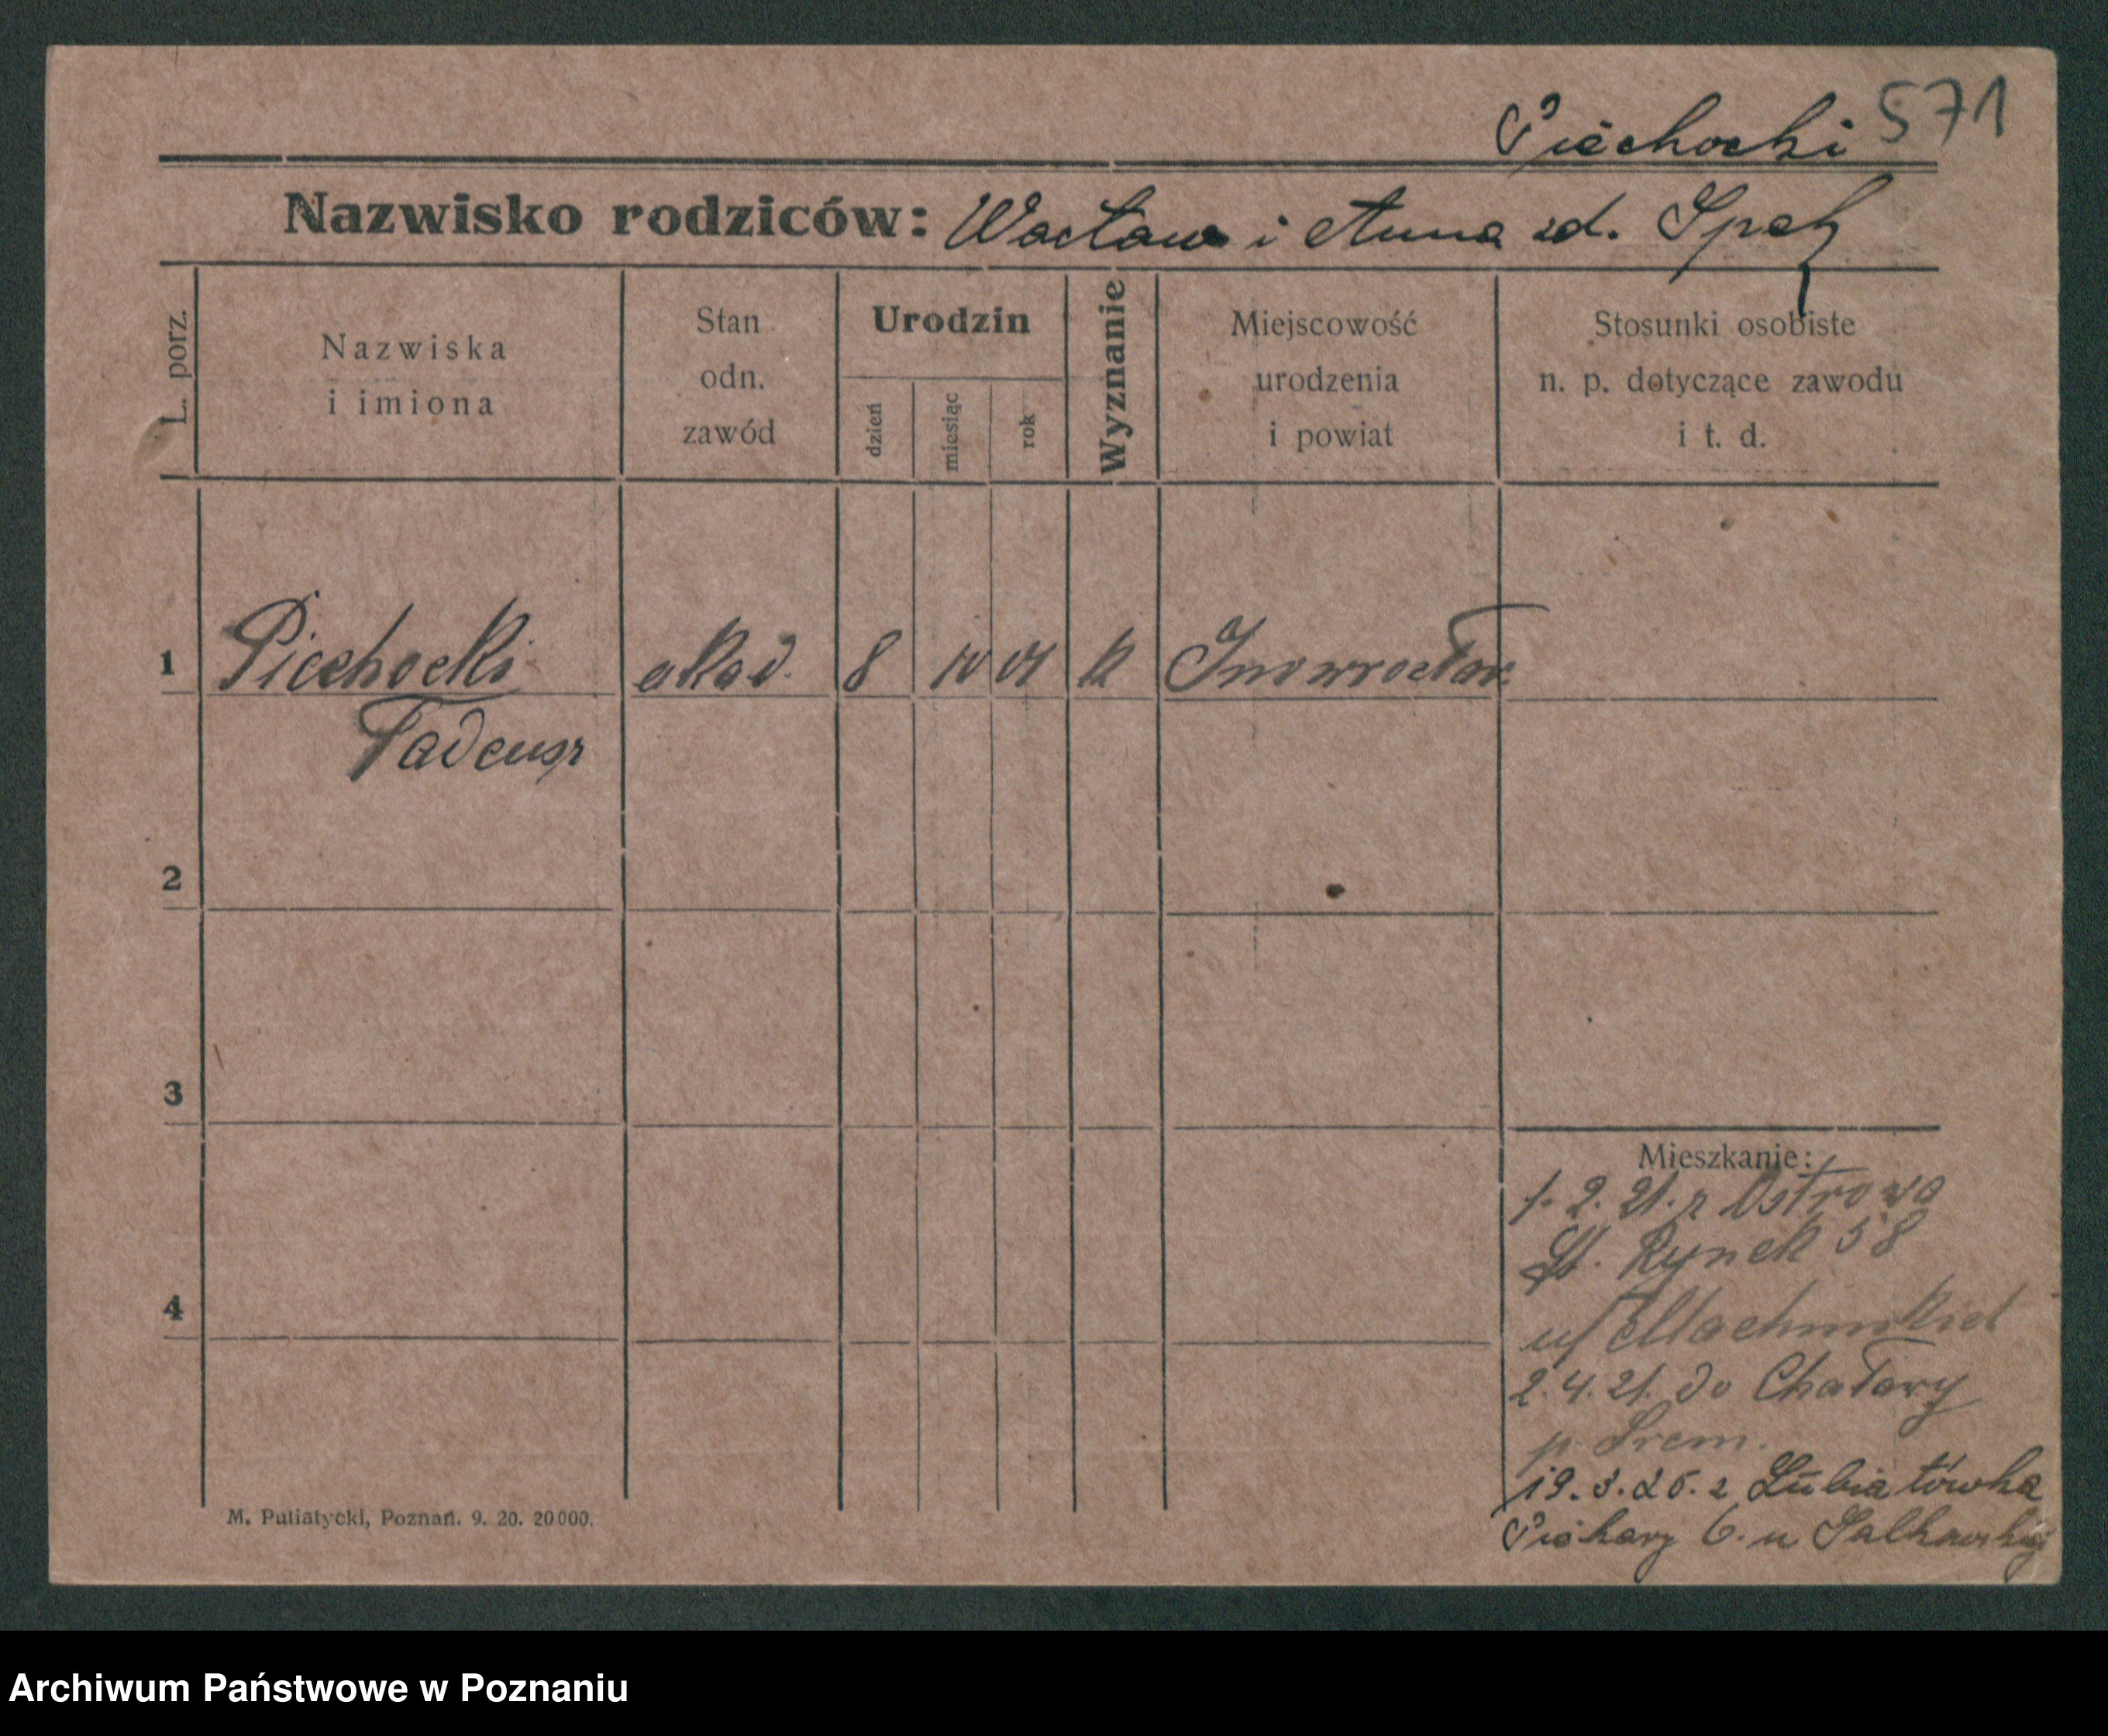 571
Piechocki
Nazwisko rodziców: Wacław i Anna zd.
L. porz.
Nazwiska
i imiona
Stan
odn.
zawód
Urodzin
dzień
miesiąc
rok
Wyznanie
Miejscowość
urodzenia
i powiat
Stosunki osobiste
n. p. dotyczące zawodu
i t. d.
1 Piechocki akad. 8 10 01 k Inowrocław
Tadeusz
2
3
4
Mieszkanie:
1. 2. 21. z Ostrowa
St. Rynek 58
2. 4. 21. do Chaławy
p. Śrem.
19. 3. 26. z Lubiatówka
Piekary 6. u
M. Putiatycki, Poznań. 9. 20. 20000.
Archiwum Państwowe w Poznaniu